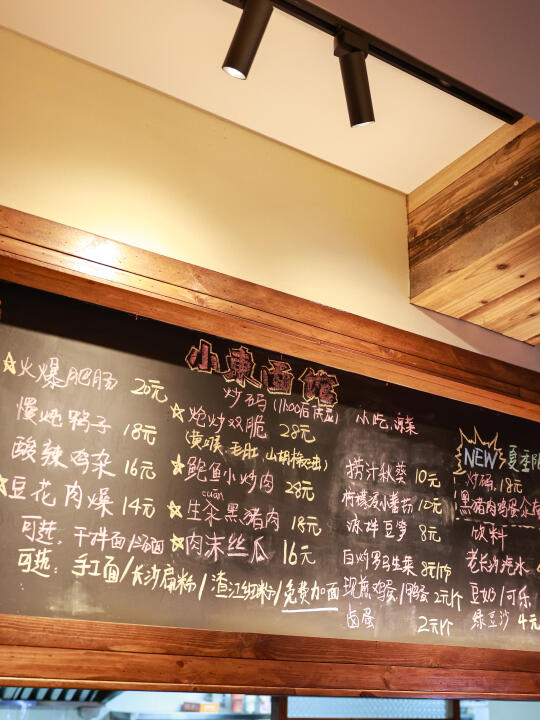 小東面馆
☆火爆肥肠 20元
慢炖鸭子 18元
酸辣鸡杂 16元
☆豆花肉燥 14元
可选: 干拌面/汤面
可选: 手工面/长沙扁粉/渣江细粉/免费加面
炒码 (11:00后供应)
☆炝炒双脆 28元
(黄喉 毛肚 山胡椒)
鲍鱼小炒肉 28元
cuān
☆生汆黑猪肉 18元
☆肉沫丝瓜 16元
小吃,凉菜
捞汁秋葵 10元
柠檬小番茄 12元
凉拌豆笋 8元
白灼罗马生菜 8元/份
现煎鸡蛋/鸭蛋 2元/个
卤蛋 2元/个
NEW 夏季
炒码 18元
黑猪肉鸡蛋
饮料
老长沙汽水
豆奶/可乐
绿豆沙 4元